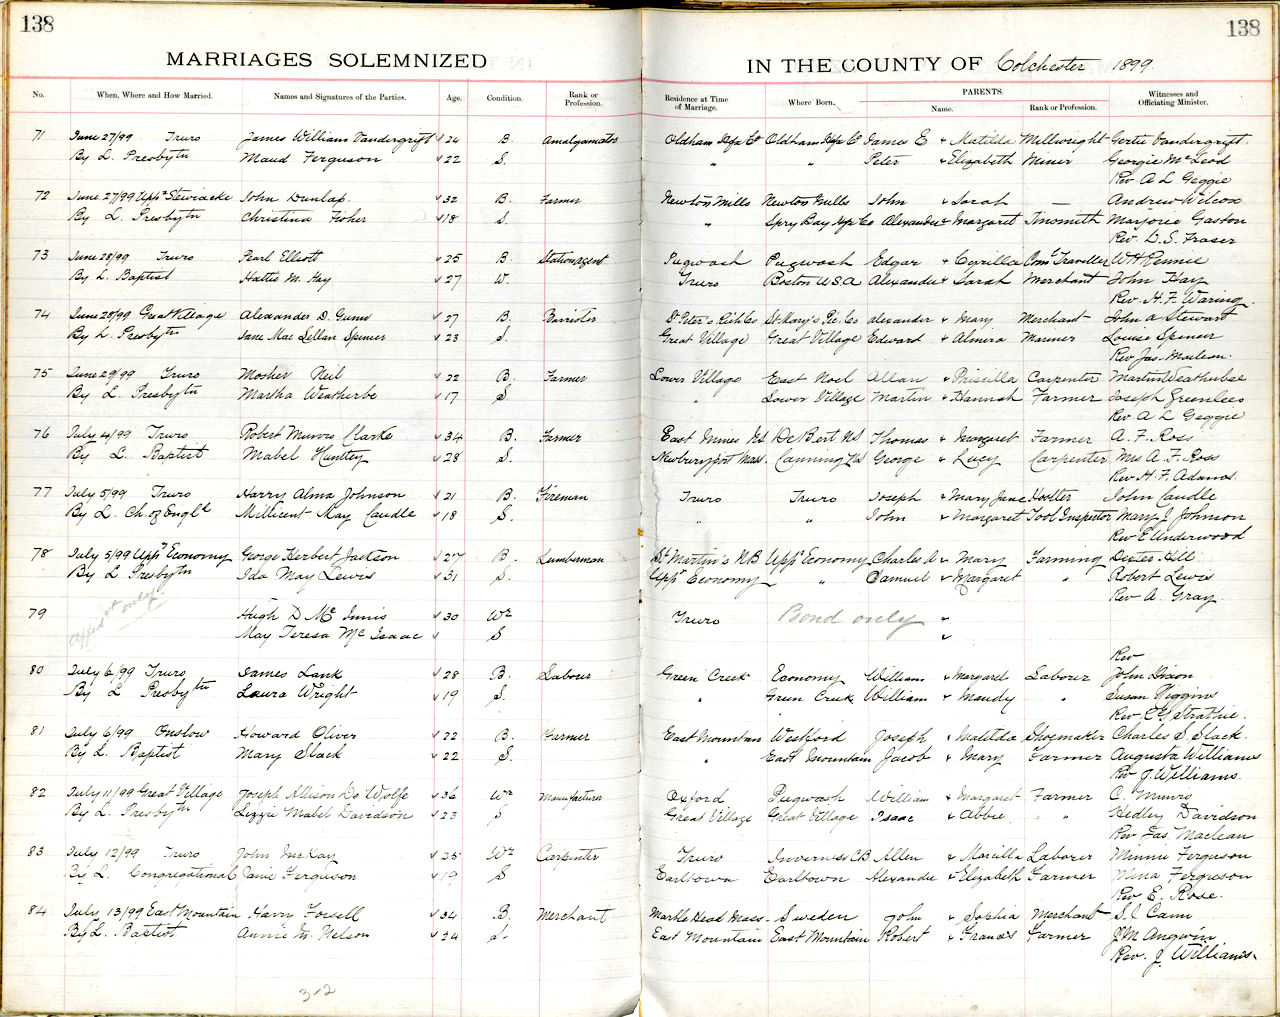 138
138
MARRIAGES SOLEMNIZED
IN THE COUNTY OF Colchester 1899
No. When, Where and How Married. Names and Signatures of the Parties. Age. Condition. Rank or Profession. Residence at Time of Marriage. Where Born. PARENTS. Name. Rank or Profession. Witnesses and Officiating Minister.
71 June 27/99 Truro James William Vandergrift 24 B. Amalgamator Oldham Hfx Co Oldham Hfx Co James E & Matilda Millwright Gertie Vandergrift.
By L. Presbytn Maud Ferguson 22 S. " " Peter & Elizabeth Miner Georgie McLeod
Rev. A L Geggie
72 June 27/99 Uppr Stewiacke John Dunlap. 32 B. Farmer Newton Mills Newton Mills John & Sarah — Andrew Wilcox
By L. Presbytn Christina Fisher 18 S. " Spry Bay Hfx Co Alexander & Margaret Tinsmith Marjorie Gaston
Rev. D. S. Fraser
73 June 28/99 Truro Pearl Elliott 25 B. Station agent Pugwash Pugwash Edgar & Cyrilla Coml Traveller W H Rennie
By L. Baptist Hattie M. Hay 27 W. Truro Boston U.S.A Alexander & Sarah Merchant John Hay
Rev. H. F. Waring
74 June 28/99 Great Village Alexander D. Gunn 27 B. Barrister St Peter's Rich Co St Mary's Pic. Co Alexander & Mary Merchant John A Stewart
By L. Presbytn Jane MacLellan Spencer 23 S. Great Village Great Village Edward & Almira Mariner Louise Spencer
Rev Jas. Maclean.
75 June 29/99 Truro Mosher Neil 22 B. Farmer Lower Village East Noel Allan & Priscilla Carpenter Martin Weatherbe
By L. Presbytn Martha Weatherbe 17 S " Lower Village Martin & Hannah Farmer Joseph Greenlees
Rev A L Geggie
76 July 4/99 Truro Robert Munro Clarke 34 B. Farmer East Mines NS DeBert NS Thomas & Margaret Farmer A. F. Ross
By L. Baptist Mabel Huntley 28 S. Newburyport Mass. Canning NS George & Lucy Carpenter Mrs A. F. Ross
Rev H. F. Adams.
77 July 5/99 Truro Harry Alma Johnson 21 B. Fireman Truro Truro Joseph & Mary Jane Hostler John Caudle
By L. Ch. of Engld Millicent May Caudle 18 S. " " John & Margaret Tool Inspector Mary J Johnson
Rev E Underwood
78 July 5/99 Uppr Economy George Herbert Jackson 27 B. Lumberman St Martin's N.B Uppr Economy Charles A & Mary Farming Dexter Hill
By L Presbytn Ida May Lewis 31 S. Uppr Economy " Samuel & Margaret " Robert Lewis
Rev A. Gray.
79 Hugh D McInnis 30 Wr Truro Bond only &
May Teresa McIsaac S &
Rev
80 July 6/99 Truro James Lank 28 B. Laborer Green Creek Economy William & Margaret Laborer John Dixon
By L Presbytn Laura Wright 19 S. " Green Creek William & Maudy " Susan Higgins
Rev. C G Strathie.
81 July 6/99 Onslow Howard Oliver 22 B. Farmer East Mountain Westford Joseph & Matilda Shoemaker Charles S. Slack.
By L. Baptist Mary Slack 22 S. " East Mountain Jacob & Mary Farmer Augusta Williams
Rev J. Williams.
82 July 11/99 Great Village Joseph Allison DeWolfe 36 Wr Manufacturer Oxford Pugwash William & Margaret Farmer C. Munro
By L. Presbytn Lizzie Mabel Davidson 23 S Great Village Great Village Isaac & Abbie " " Hedley Davidson
Rev Jas. Maclean
83 July 12/99 Truro John McKay 25 Wr Carpenter Truro Inverness CB Allen & Marcilla Laborer Minnie Ferguson
By L. Congregational Janie Ferguson 19 S Earltown Earltown Alexander & Elizabeth Farmer Nina Ferguson
Rev. E. Rose.
84 July 13/99 East Mountain Harry Forsell 34 B. Merchant Marble Head Mass. Sweden John & Sophia Merchant S. J. Cann
By L. Baptist Annie M. Nelson 24 S. East Mountain East Mountain Robert & Frances Farmer J M Angwin
Rev. J. Williams.
32